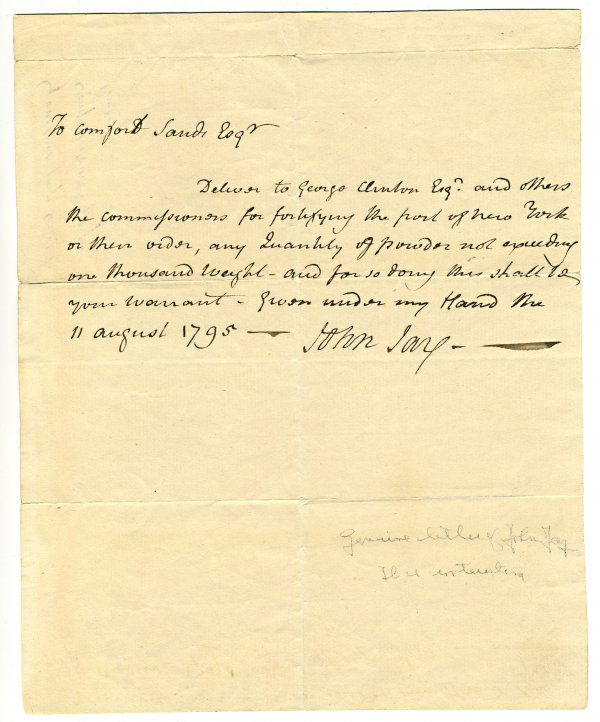 To Comfort Sands Esqr
Deliver to George Clinton Esqr. and others
the commissioners for fortifying the port of New York
or their order, any Quantity of powder not exceeding
one thousand weight - and for so doing this shall be
your warrant - Given under my Hand the
11 august 1795 — John Jay - —
Genuine letter of John Jay